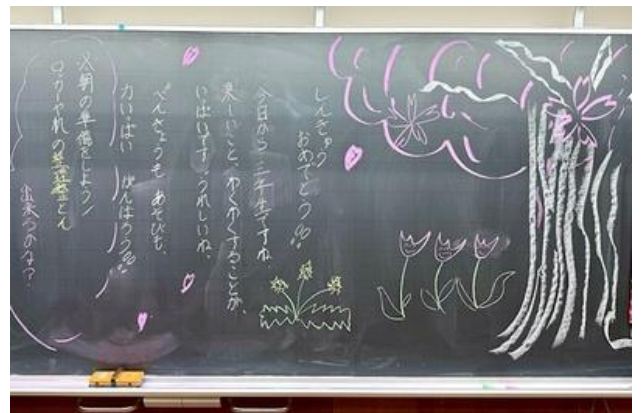 しんきゅう
おめでとう!!
今日から二年生ですね。
楽しいこと、わくわくすることが、
いっぱいです。うれしいね。
べんきょうも、あそびも、
力いっぱい がんばろう!!
※朝の準備をしよう!
出来るのかな?